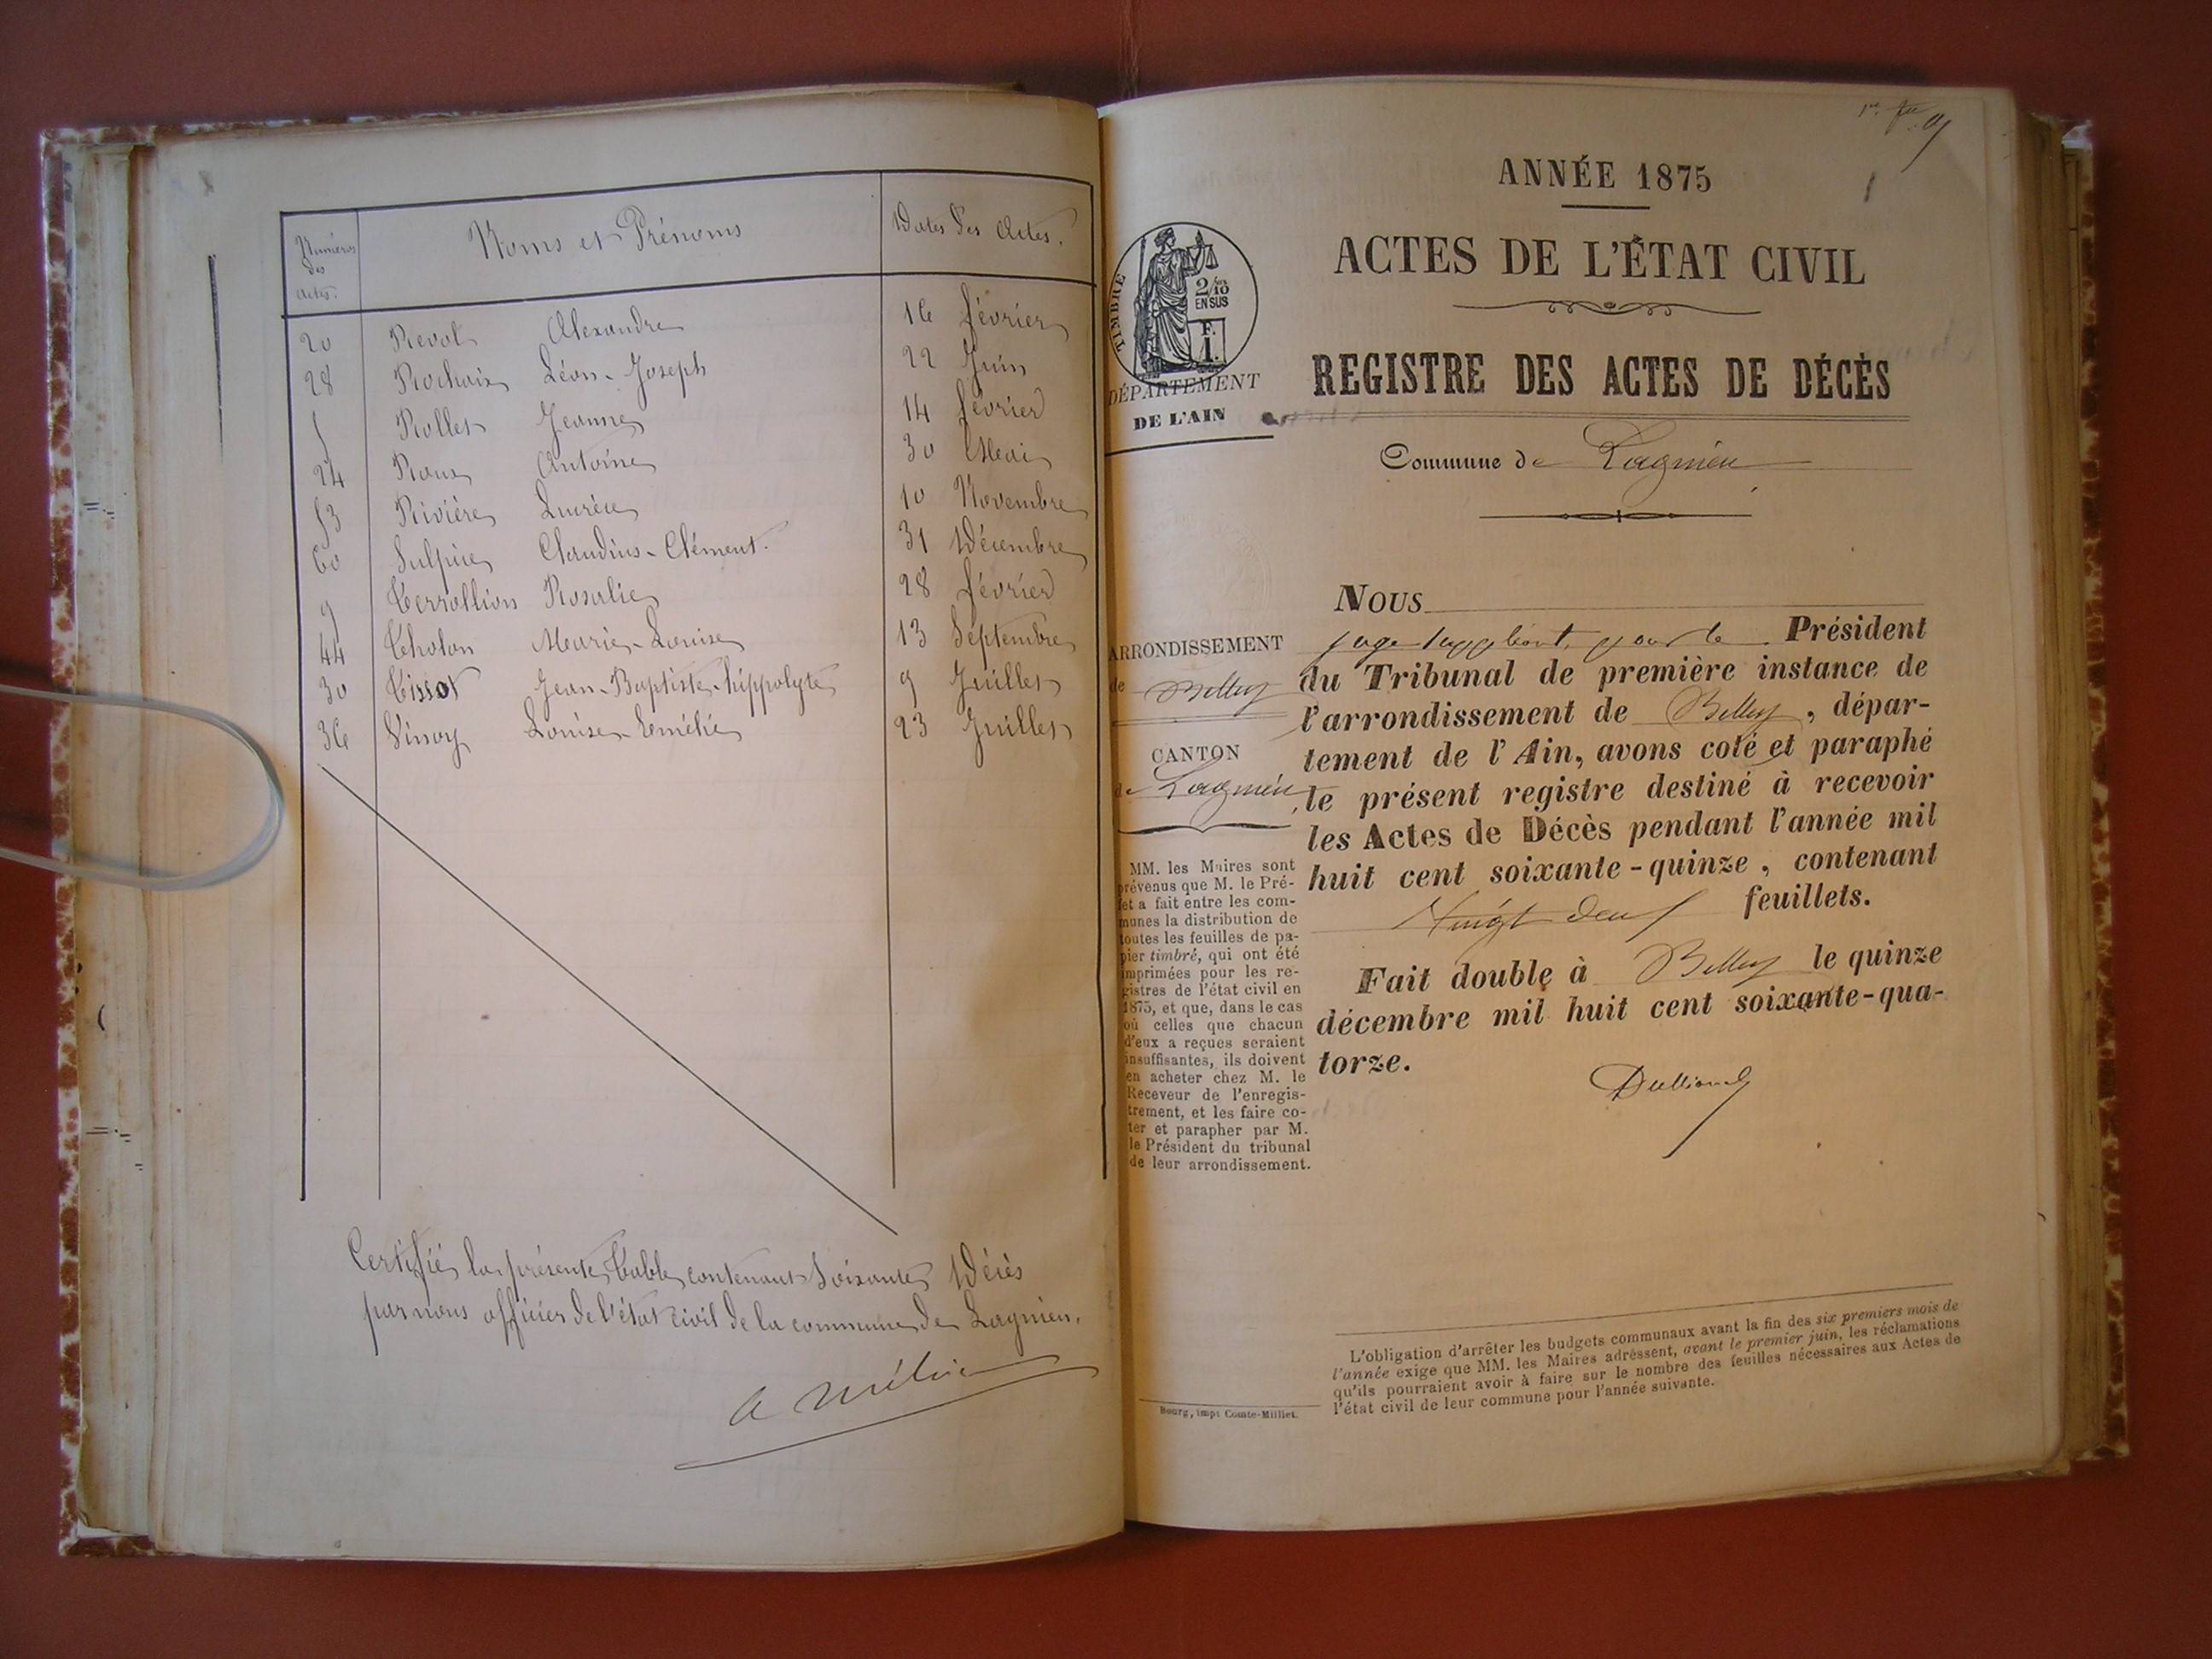 Numéros des actes. Noms et Prénoms Dates des Actes.
20 Revol Alexandre 16 février
28 Rochaix Léon-Joseph 22 Juin
5 Rollet Jeanne 14 février
24 Roux Antoine 30 Mai
53 Rivière Lucrèce 10 Novembre
60 Sulpice Claudius-Clément. 31 Décembre
9 Terrollion Rosalie 28 février
44 Tholon Marie-Louise 13 Septembre
30 Tissot Jean-Baptiste-hippolyte 9 Juillet
36 Vinoy Louise-Emélie 23 Juillet
Certifié la présente Table contenant Soixante Décès
par nous officier de l'état civil de la commune de Lagnieu.
1
ANNÉE 1875
ACTES DE L'ÉTAT CIVIL
REGISTRE DES ACTES DE DÉCÈS
TIMBRE
2/10
EN SUS
F.
1.
DÉPARTEMENT
DE L'AIN
Commune de Lagnieu
ARRONDISSEMENT
de Belley
CANTON
de Lagnieu
MM. les Maires sont
prévenus que M. le Pré-
fet a fait entre les com-
munes la distribution de
toutes les feuilles de pa-
pier timbré, qui ont été
imprimées pour les re-
gistres de l'état civil en
1875, et que, dans le cas
où celles que chacun
d'eux a reçues seraient
insuffisantes, ils doivent
en acheter chez M. le
Receveur de l'enregis-
trement, et les faire co-
ter et parapher par M.
le Président du tribunal
de leur arrondissement.
NOUS
juge suppléant, pour le Président
du Tribunal de première instance de
l'arrondissement de Belley, dépar-
tement de l'Ain, avons coté et paraphé
le présent registre destiné à recevoir
les Actes de Décès pendant l'année mil
huit cent soixante-quinze, contenant
Vingt deux feuillets.
Fait double à Belley le quinze
décembre mil huit cent soixante-qua-
torze.
L'obligation d'arrêter les budgets communaux avant la fin des six premiers mois de
l'année exige que MM. les Maires adressent, avant le premier juin, les réclamations
qu'ils pourraient avoir à faire sur le nombre des feuilles nécessaires aux Actes de
l'état civil de leur commune pour l'année suivante.
Bourg, impt Comte-Milliet.